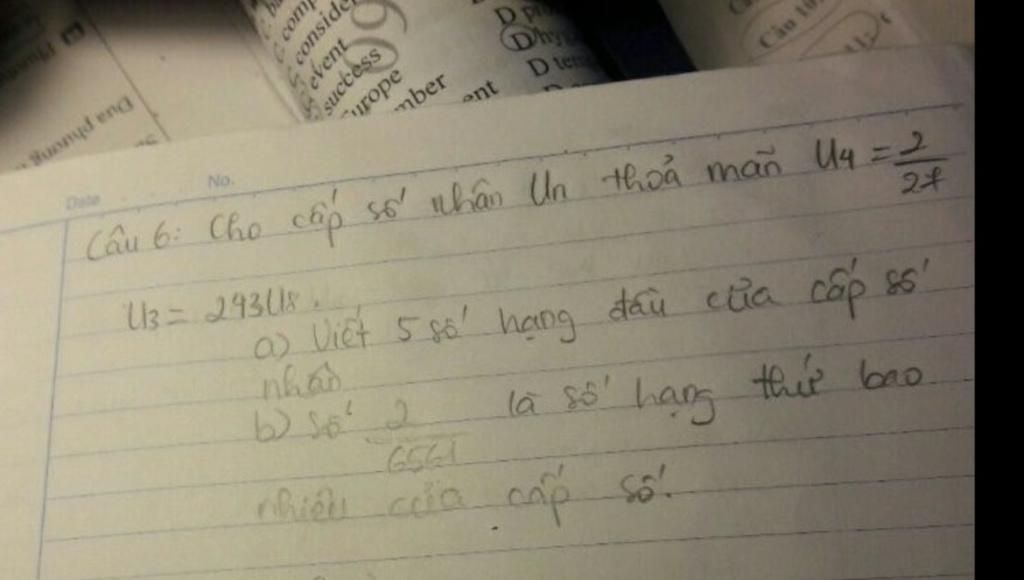 comp
consider
event
success
europe
mber
ent
D
D
D ten
09
Câu 10
Dua phuong
Date
No.
Câu 6: Cho cấp số nhân Un thoả mãn U4 = 2/27
U3 = 243U8.
a) Viết 5 số hạng đầu của cấp số
nhân
b) Số 2/6561 là số hạng thứ bao
nhiêu của cấp số.